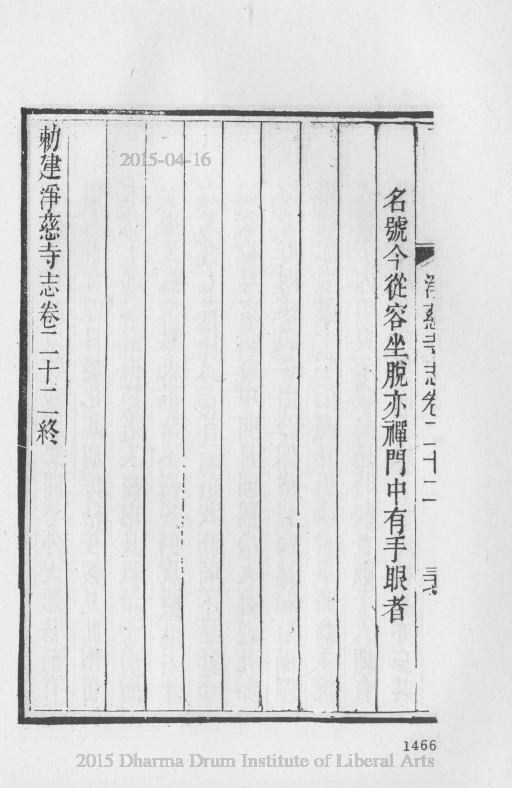 淨慈寺志卷二十二
名號今從容坐脫亦禪門中有手眼者
勅建淨慈寺志卷二十二終
2015-04-16
1466
2015 Dharma Drum Institute of Liberal Arts